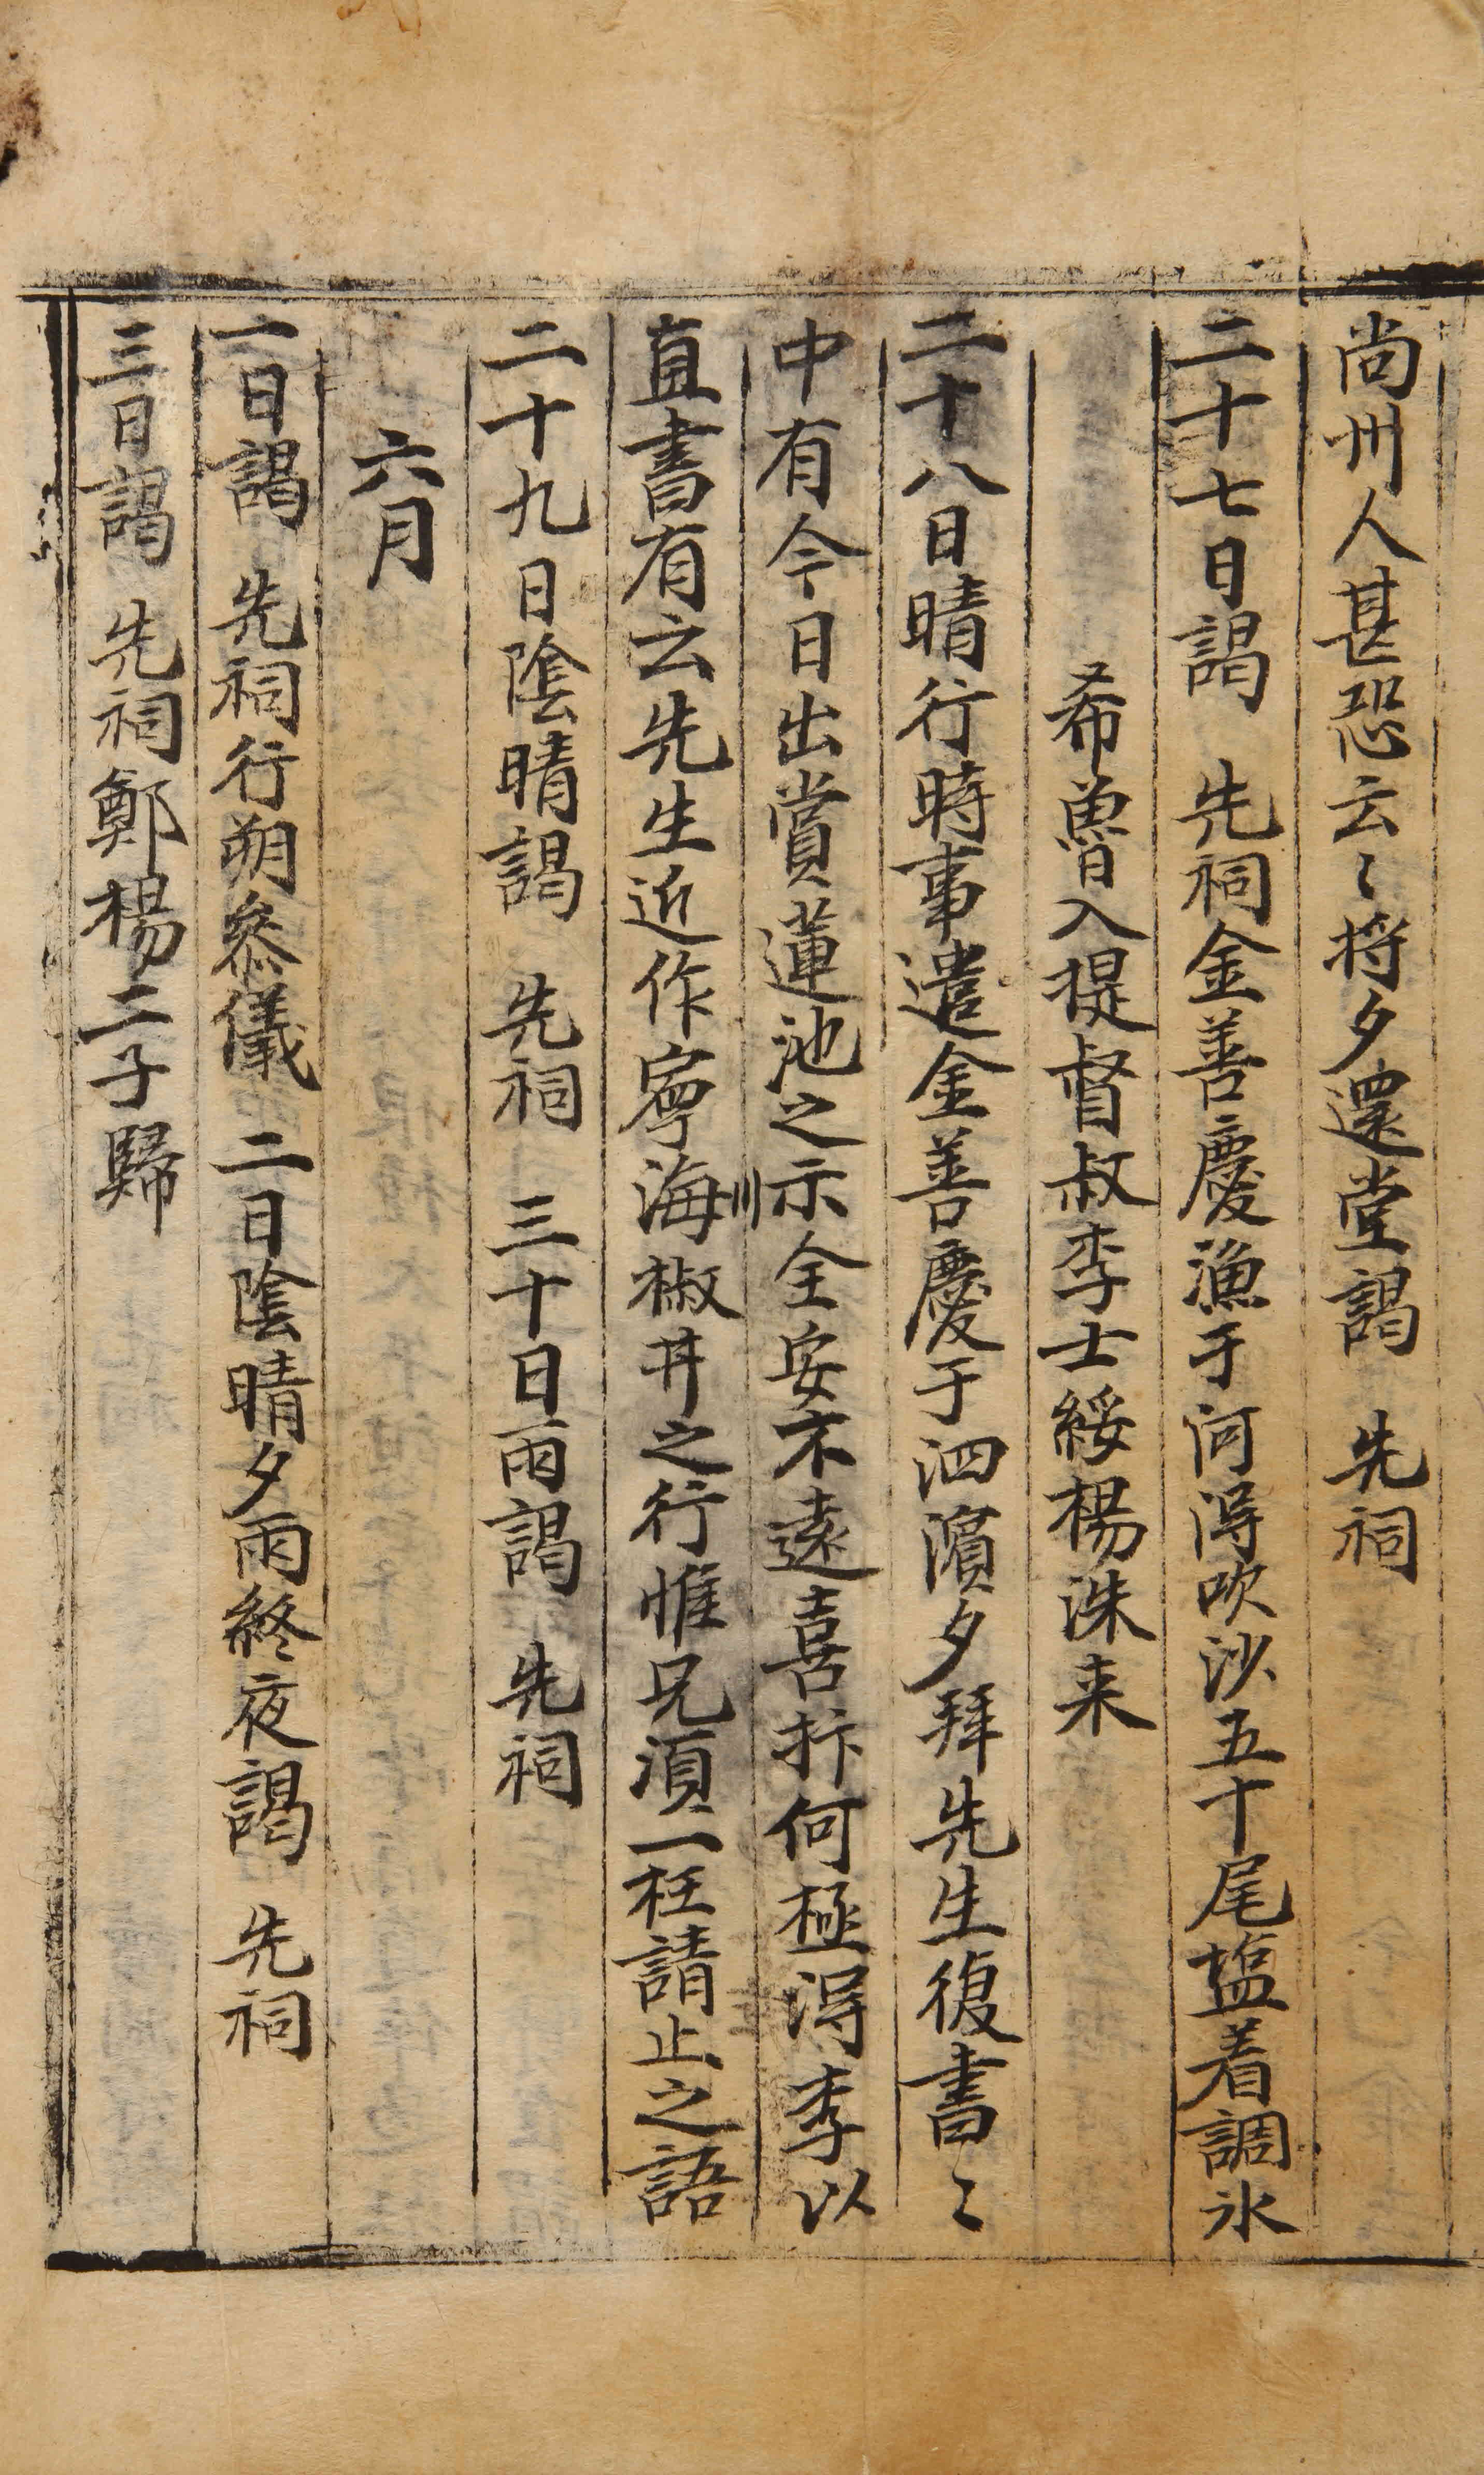 尙州人甚恐云〻將夕還堂謁 先祠
二十七日謁 先祠金善慶漁于河得吹沙五十尾塩着調氷
希魯入提督叔李士綏楊洙来
二十八日晴行時事遣金善慶于泗濱夕拜先生復書〻
中有今日出賞蓮池之示全安不遠喜抃何極得李以
直書有云先生近作寧海椒井之行惟兄須一枉請止之語
二十九日陰晴謁 先祠 三十日雨謁 先祠
六月
一日謁 先祠行朔叅儀 二日陰晴夕雨終夜謁 先祠
三日謁 先祠鄭楊二子歸